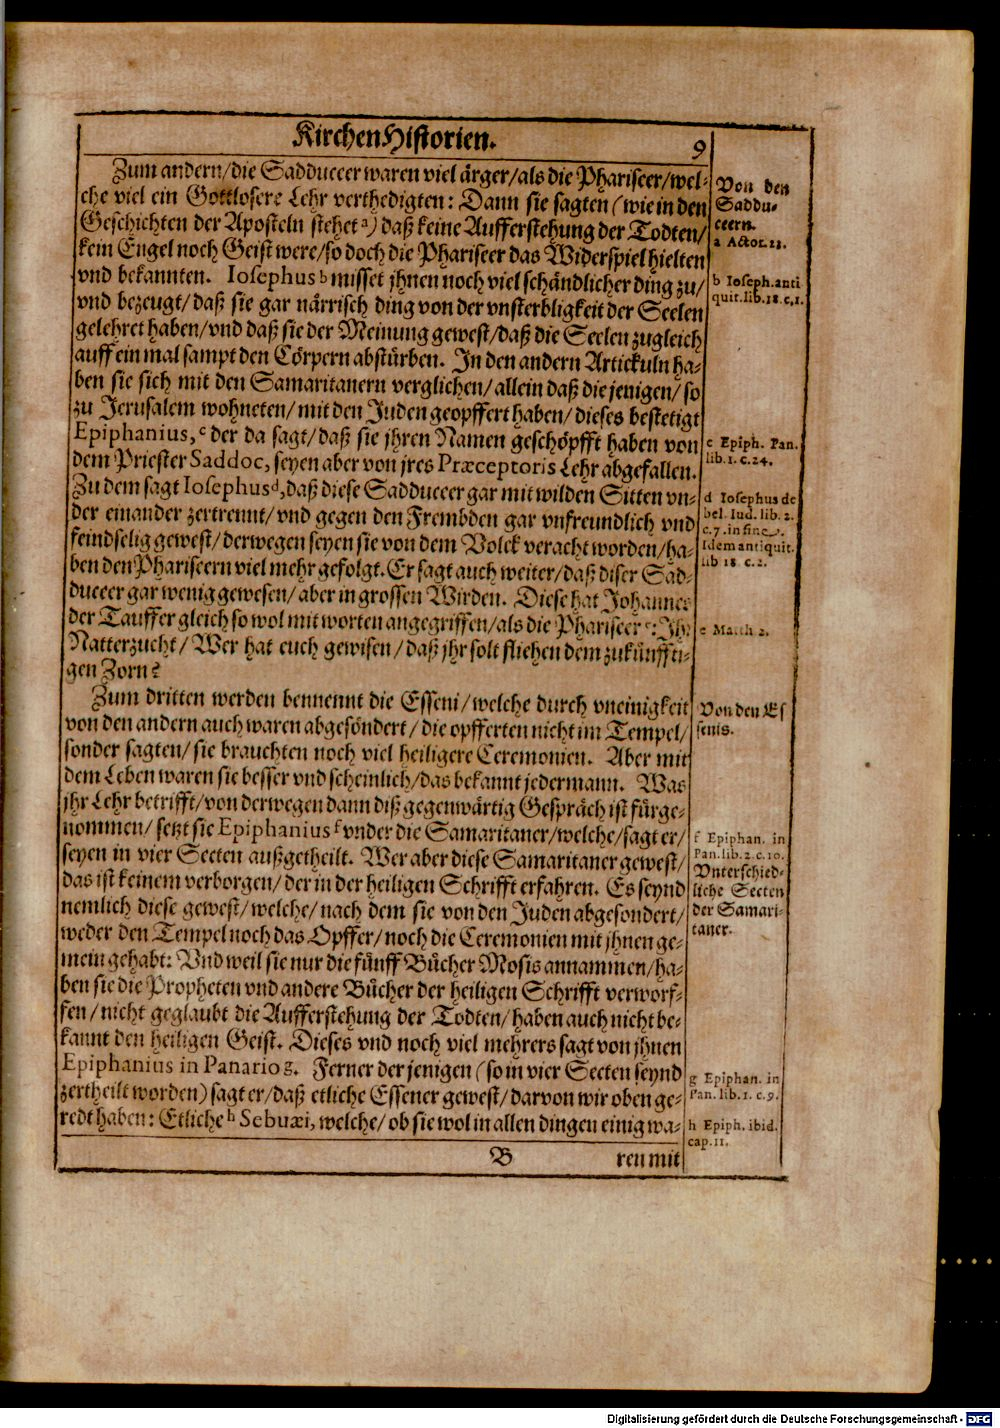 KirchenHistorien.
9
Zum andern/die Sadduceer waren viel ärger/als die Phariseer/wel-
che viel ein Gottlosere Lehr verthedigten: Dann sie sagten (wie in den
Geschichten der Aposteln stehet a) daß keine Aufferstehung der Todten/
kein Engel noch Geist were/so doch die Phariseer das Widerspiel hielten
vnd bekannten. Iosephus b misset jhnen noch viel schändlicher ding zu/
vnd bezeugt/daß sie gar närrisch ding von der vnsterbligkeit der Seelen
gelehret haben/vnd daß sie der Meinung gewest/daß die Seelen zugleich
auff ein mal sampt den Cörpern abstürben. In den andern Artickuln ha-
ben sie sich mit den Samaritanern verglichen/allein daß die jenigen/so
zu Jerusalem wohneten/mit den Juden geopffert haben/dieses bestetigt
Epiphanius, c der da sagt/daß sie jhren Namen geschöpfft haben von
dem Priester Saddoc, seyen aber von jres Præceptoris Lehr abgefallen.
Zu dem sagt Iosephus d, daß diese Sadduceer gar mit wilden Sitten vn-
der einander zertrennt/vnd gegen den Frembden gar vnfreundlich vnd
feindselig gewest/derwegen seyen sie von dem Volck veracht worden/ha-
ben den Phariseern viel mehr gefolgt. Er sagt auch weiter/daß diser Sad-
duceer gar wenig gewesen/aber in grossen Wirden. Diese hat Johannes
der Tauffer gleich so wol mit worten angegriffen/als die Phariseer e: Jhr
Natterzucht/Wer hat euch gewisen/daß jhr solt fliehen dem zukünffti-
gen Zorn?
Zum dritten werden bennennt die Esseni/welche durch vneinigkeit
von den andern auch waren abgesöndert/die opfferten nicht im Tempel/
sonder sagten/sie brauchten noch viel heiligere Ceremonien. Aber mit
dem Leben waren sie besser vnd scheinlich/das bekannt jedermann. Was
jhr Lehr betrifft/von derwegen dann diß gegenwärtig Gespräch ist fürge-
nommen/setzt sie Epiphanius f vnder die Samaritaner/welche/sagt er/
seyen in vier Secten außgetheilt. Wer aber diese Samaritaner gewest/
das ist keinem verborgen/der in der heiligen Schrifft erfahren. Es seynd
nemlich diese gewest/welche/nach dem sie von den Juden abgesondert/
weder den Tempel noch das Opffer/noch die Ceremonien mit jhnen ge-
mein gehabt: Vnd weil sie nur die fünff Bücher Mosis annammen/ha-
ben sie die Propheten vnd andere Bücher der heiligen Schrifft verworf-
fen/nicht geglaubt die Aufferstehung der Todten/haben auch nicht be-
kannt den heiligen Geist. Dieses vnd noch viel mehrers sagt von jhnen
Epiphanius in Panario g. Ferner der jenigen (so in vier Secten seynd
zertheilt worden) sagt er/daß etliche Essener gewest/darvon wir oben ge-
redt haben: Etliche h Sebuæi, welche/ob sie wol in allen dingen einig wa-
B
ren mit
Von den
Saddu-
ceern.
a Actor. 23.
b Ioseph. anti
quit. lib. 18. c. 1.
c Epiph. Pan.
lib. 1. c. 24.
d Iosephus de
bel. Iud. lib. 2.
c. 7. in fine.
Idem antiquit.
lib 18. c. 2.
e Matth 2.
Von den Es
senis.
f Epiphan. in
Pan. lib. 2. c. 10.
Vnterschied-
liche Secten
der Samari-
taner.
g Epiphan. in
Pan. lib. 1. c. 9.
h Epiph. ibid.
cap. 11.
Digitalisierung gefördert durch die Deutsche Forschungsgemeinschaft - DFG